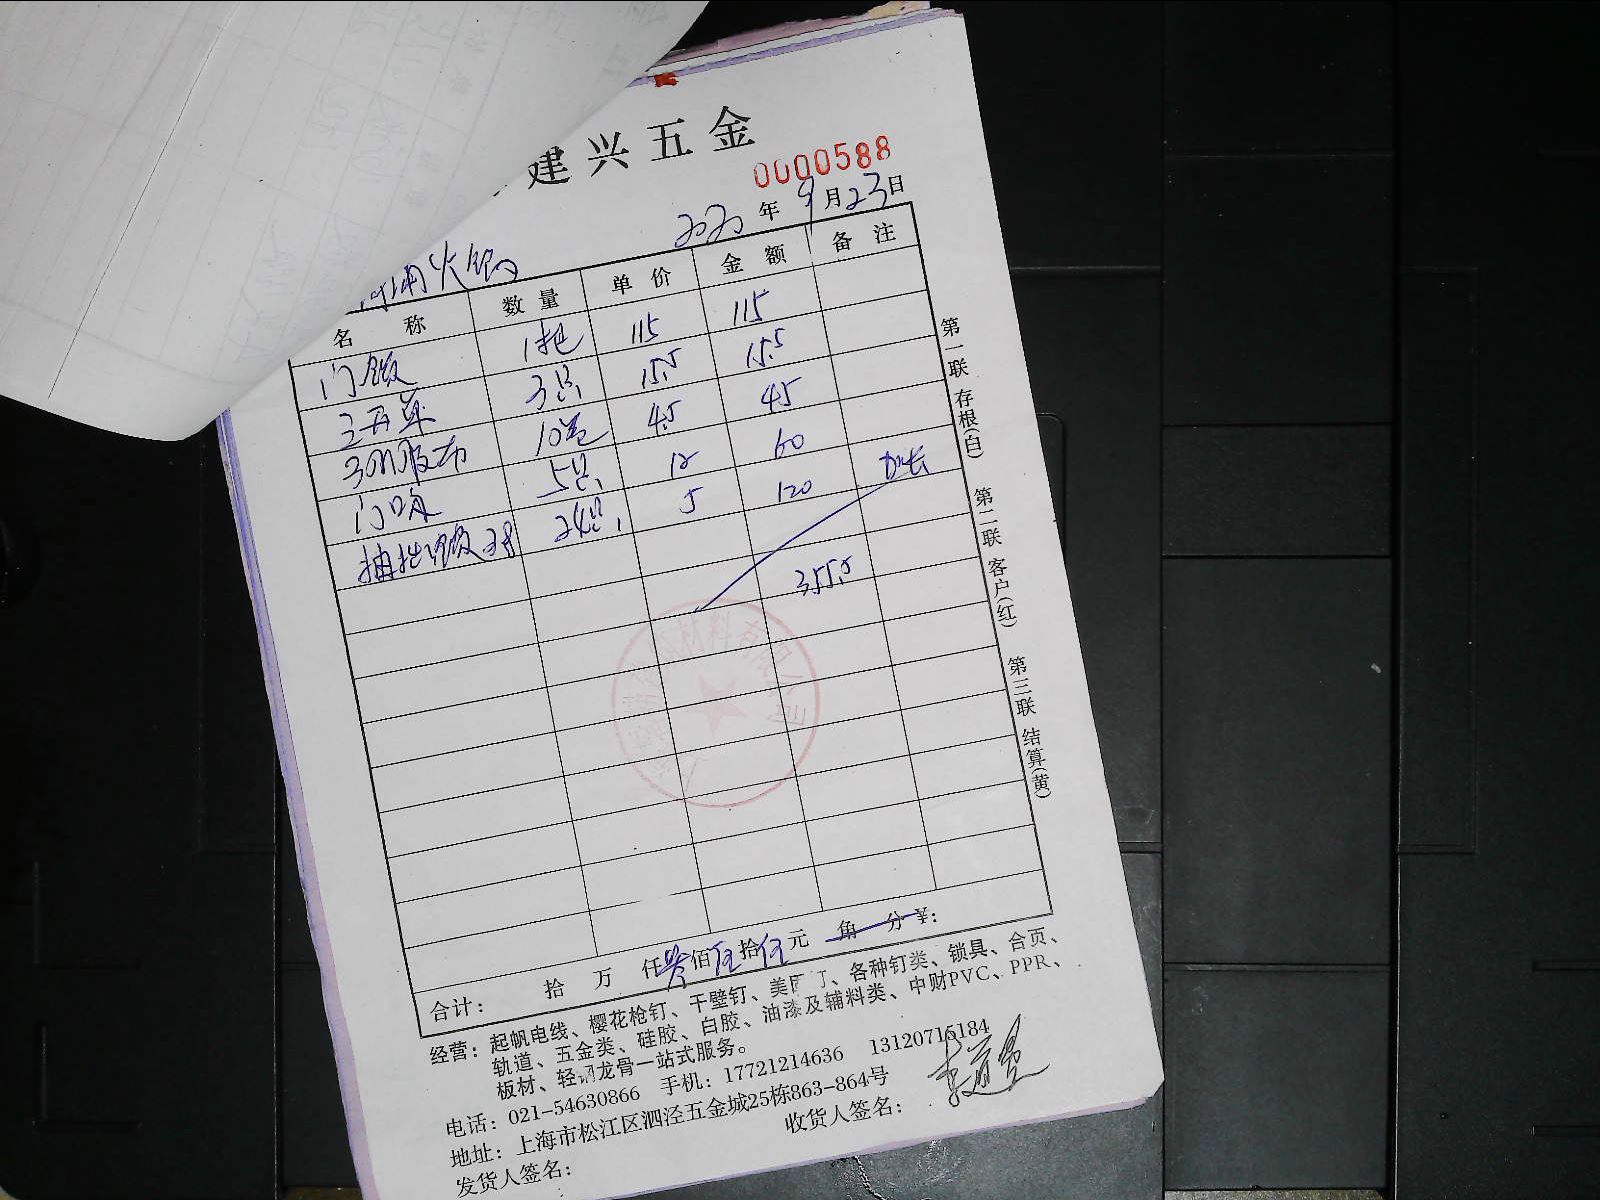 建兴五金
0000588
2020年9月23日
火锅
名称 数量 单价 金额 备注
门锁 1把 115 115
3只 15.5 15.5
10卷 4.5 45
门吸 5只 12 60
抽拉锁 38 24只 5 120 加长
355.5
第一联 存根(白) 第二联 客户(红) 第三联 结算(黄)
合计: 拾 万 仟叁佰伍拾伍元 角 分 ¥:
经营: 起帆电线、樱花枪钉、干壁钉、美固钉、各种钉类、锁具、合页、
轨道、五金类、硅胶、白胶、油漆及辅料类、中财PVC、PPR、
板材、轻钢龙骨一站式服务。
电话: 021-54630866 手机: 17721214636 13120715184
地址: 上海市松江区泗泾五金城25栋863-864号
发货人签名: 收货人签名: